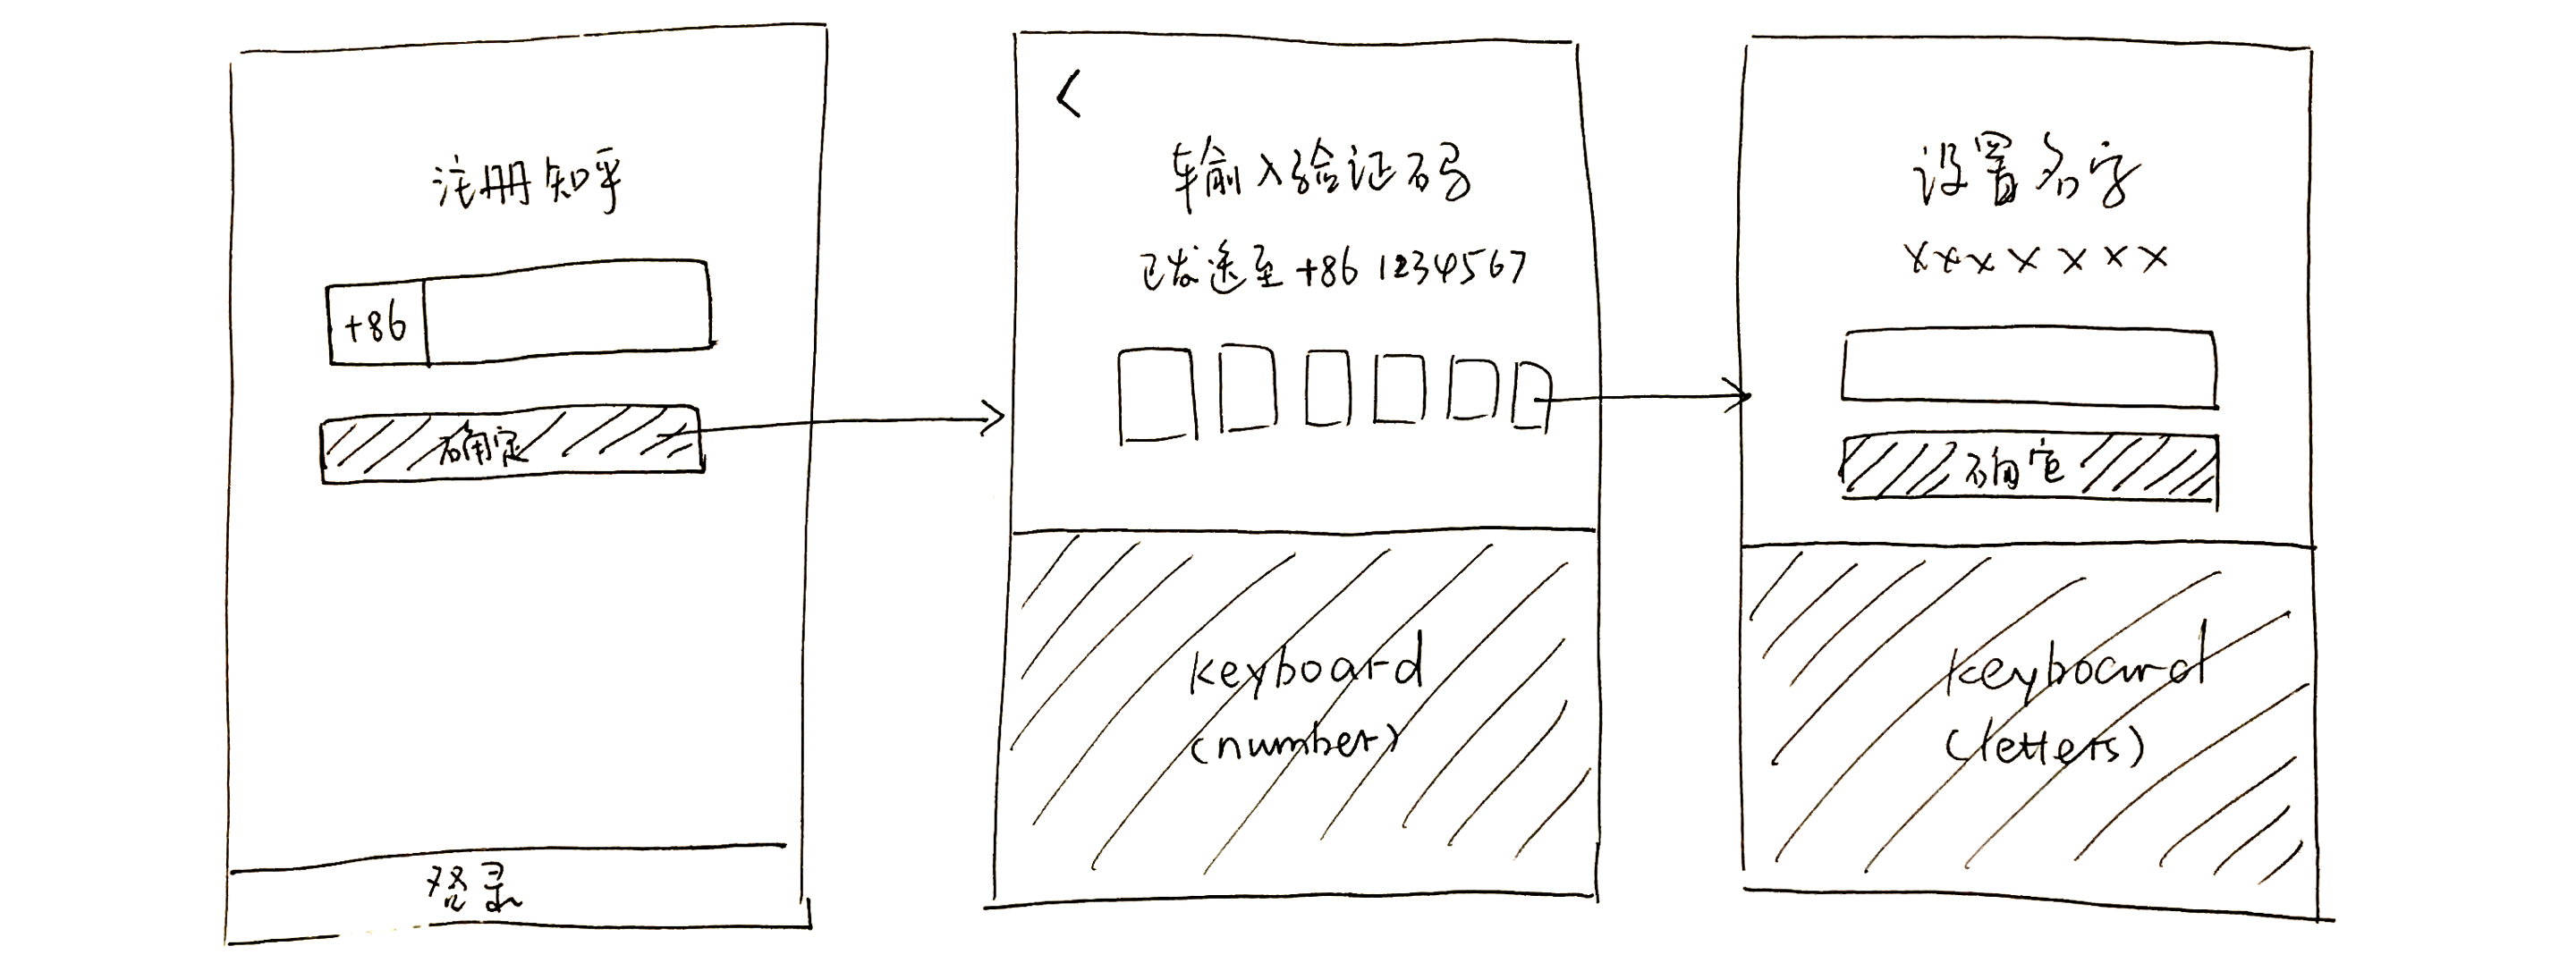 注册知乎
+86
确定
登录
<
输入验证码
已发送至 +86 1234567
keyboard
(number)
设置名字
×××××××
确定
keyboard
(letters)